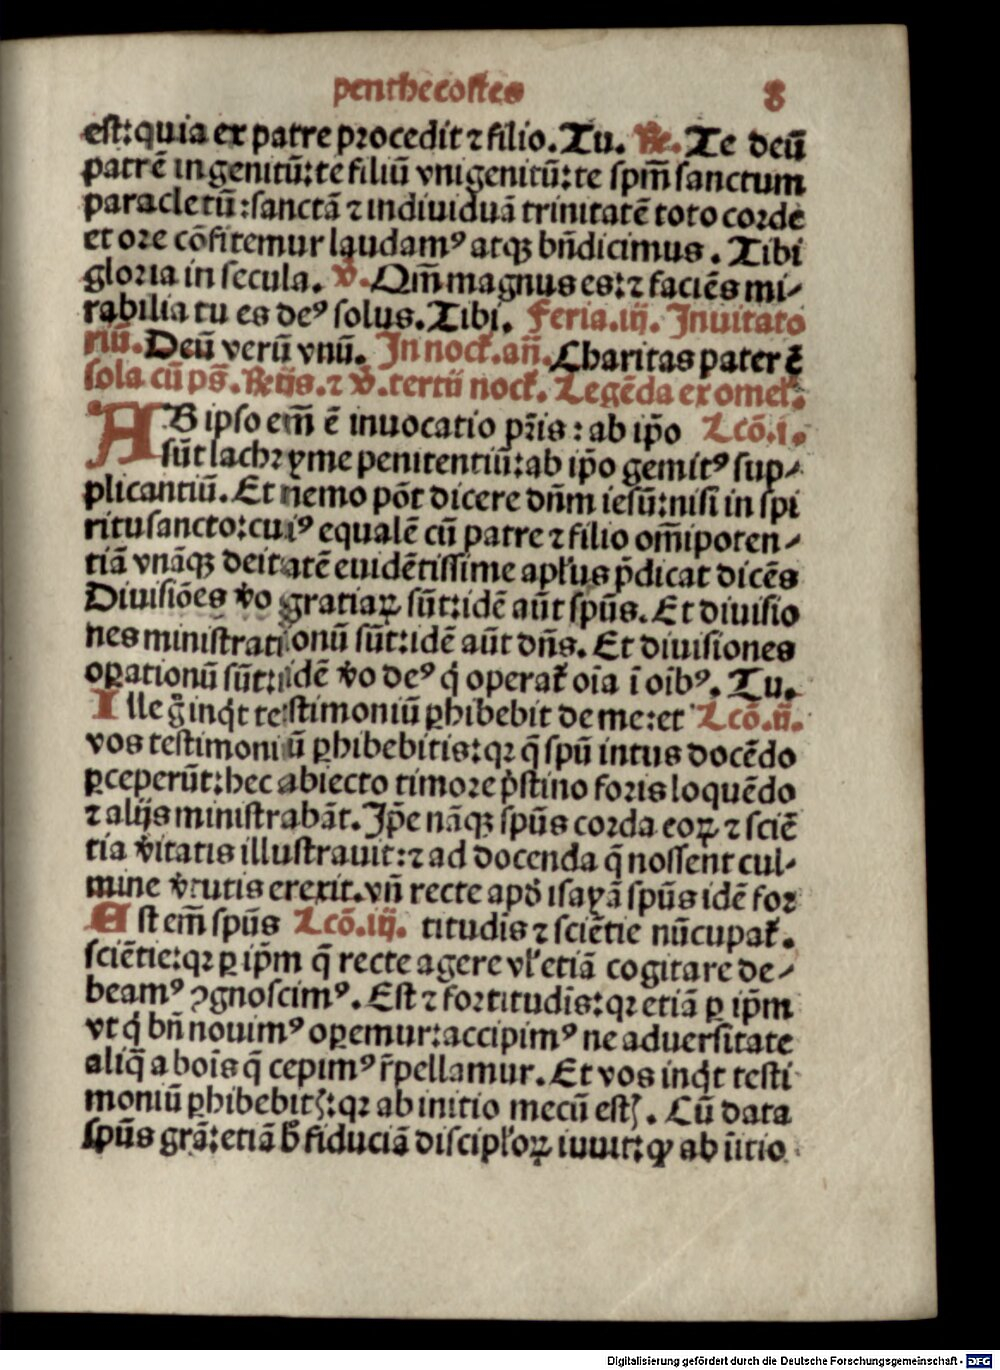 penthecostes 8
est: quia ex patre procedit ⁊ filio. Tu. ℟. Te deū
patrē ingenitū: te filiū vnigenitū: te spm̄ sanctum
paracletū: sanctā ⁊ indiuiduā trinitatē toto corde
et ore cōfitemur laudamꝰ atqꝫ bn̄dicimus. Tibi
gloria in secula. ℣. Qm̄ magnus es: ⁊ faciēs mi-
rabilia tu es deꝰ solus. Tibi. Feria .iij. Inuitato
riū. Deū verū vnū. In noct̄. an̄. Charitas pater ē
sola cū ps̄. ℞ijs. ⁊ ℣. tertii noct̄. Legēda ex omel̄.
AB ipso em̄ ē inuocatio pr̄is: ab ip̄o Lcō .i.
sūt lachryme penitentiū: ab ip̄o gemitꝰ sup-
plicantiū. Et nemo pōt dicere dn̄m iesū: nisi in spi
ritusancto: cuiꝰ equalē cū patre ⁊ filio om̄ipoten-
tiā vnāqꝫ deitatē euidētissime apl̄us p̄dicat dicēs
Diuisiōes v̄o gratiaꝝ sūt: idē aūt spūs. Et diuisio
nes ministrationū sūt: idē aūt dn̄s. Et diuisiones
oꝑationū sūt: idē v̄o deꝰ q̇ operat̄ oīa ī oībꝰ. Tu.
Ille g̊ inq̇t testimoniū ꝑhibebit de me: et Lcō .ii.
vos testimoniū ꝑhibebitis: qꝛ q̄ spū intus docēdo
ꝑceperūt: hec abiecto timore ṗstino foris loquēdo
⁊ alijs ministrabāt. Ip̄e nāqꝫ spūs corda eoꝝ ⁊ sciē
tia v̄itatis illustrauit: ⁊ ad docenda q̄ nossent cul-
mine v̄tutis erexit. vn̄ recte apḋ isayā spūs idē for
Est em̄ spūs Lcō .iij. titudis ⁊ sciētie nūcupat̄.
sciētie: qꝛ ꝑ ip̄m q̄ recte agere vl̄ etiā cogitare de-
beamꝰ ꝯgnoscimꝰ. Est ⁊ fortitudīs: qꝛ etiā ꝑ ip̄m
vt q̇ bn̄ nouimꝰ oꝑemur: accipimꝰ ne aduersitate
aliq̄ a boīs q̄ cepimꝰ r̄pellamur. Et vos inq̇t testi
moniū ꝑhibebitꝭ: qꝛ ab initio mecū estꝭ. Cū data
spūs grā: etiā vr̄a fiduciā discipl̄oꝝ iuuit: qꝛ ab īitio
Digitalisierung gefördert durch die Deutsche Forschungsgemeinschaft - DFG